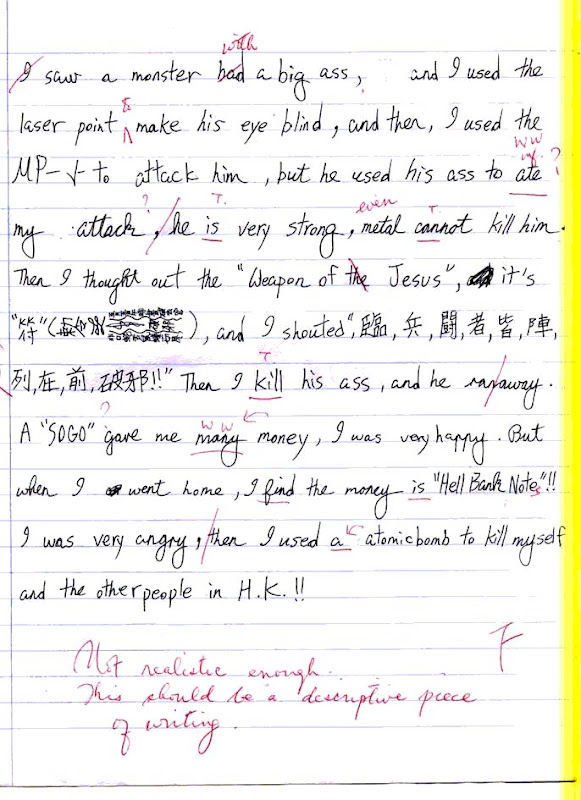 with
I saw a monster had a big ass, and I used the
laser point & make his eye blind, and then, I used the
WW
MP-5 to attack him, but he used his ass to ate ?
? T. even T
my attack, he is very strong, metal cannot kill him.
Then I thought out the "Weapon of the Jesus", it's
"符" ( ), and I shouted "臨, 兵, 鬪, 者, 皆, 陣,
T
列, 在, 前, 破邪!!" Then I kill his ass, and he ran away.
? W W
A "SOGO" gave me many money, I was very happy. But
when I went home, I find the money is "Hell Bank Notes"!!
I was very angry, then I used a atomic bomb to kill myself
and the other people in H.K.!!
F
Not realistic enough.
This should be a descriptive piece
of writing.